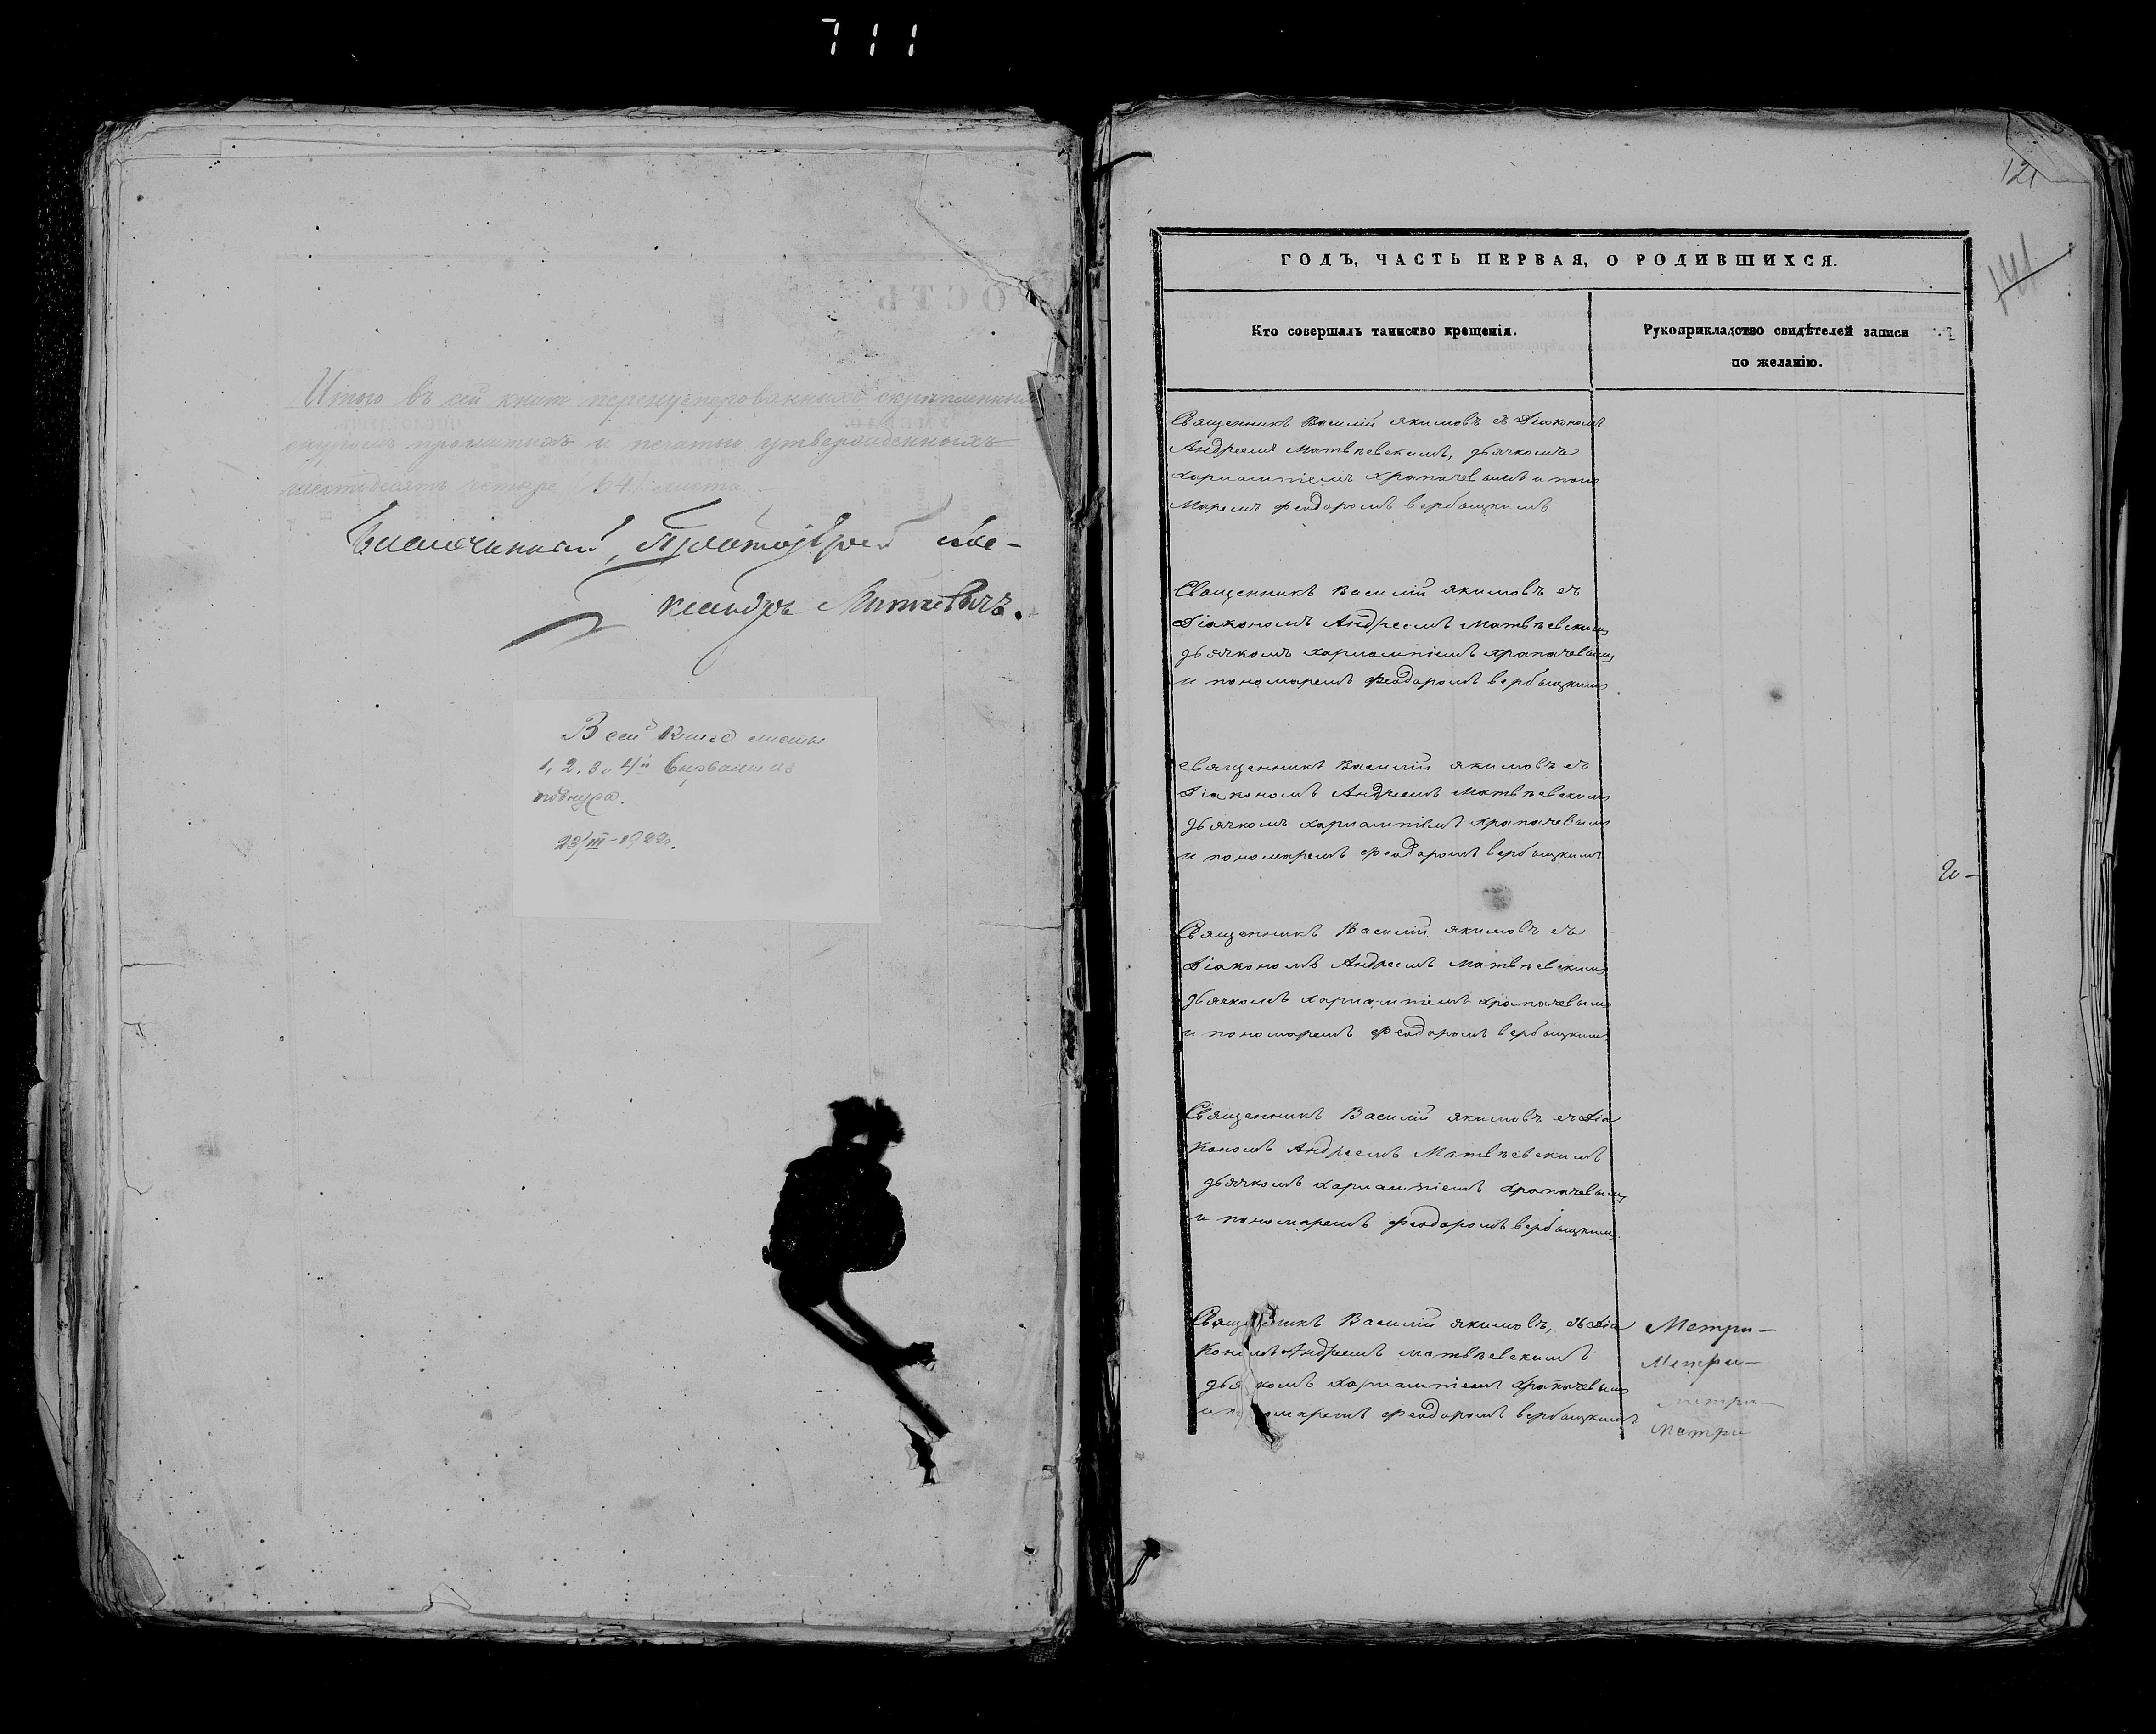 711
Итого въ сей книгѣ перенумерованныхъ скрѣпленныхъ
шнуромъ прошитыхъ и печатью утвержденныхъ
шестьдесятъ четыре (64) листа.
Благочинный, Протоіерей Але-
ксандръ
В сей книге листы
1, 2, 3 и 4й вырваны из
23/III-1922г.
121
141
ГОДЪ, ЧАСТЬ ПЕРВАЯ, О РОДИВШИХСЯ.
Кто совершалъ таинство крещенія.
Рукоприкладство свидѣтелей записи
по желанію.
Священникъ Василій Якимовъ съ Діакономъ
Андреемъ Матвѣевскимъ, дьячкомъ
Харлампіемъ Храпачевымъ и поно
Маремъ Феодоромъ Вербицкимъ
Священникъ Василій Якимовъ съ
Діакономъ Андреемъ Матвѣевскимъ
дьячкомъ Харлампіемъ Храпачевымъ
и пономаремъ Феодоромъ Вербицкимъ
Священникъ Василій Якимовъ съ
Діакономъ Андреемъ Матвѣевскимъ
дьячкомъ Харлампіемъ Храпачевымъ
и пономаремъ Феодоромъ Вербицкимъ
Священникъ Василій Якимовъ съ
Діакономъ Андреемъ Матвѣевскимъ
дьячкомъ Харлампіемъ Храпачевымъ
и пономаремъ Феодоромъ Вербицкимъ
Священникъ Василій Якимовъ съ Діа
Кономъ Андреемъ Матвѣевскимъ
дьячкомъ Харлампіемъ Храпачевымъ
и пономаремъ Феодоромъ Вербицкимъ
Священникъ Василій Якимовъ, съ Діа
Кономъ Андреемъ Матвѣевскимъ
дьячкомъ Харлампіемъ Храпачевымъ
и пономаремъ Феодоромъ Вербицкимъ
Метри-
Метри-
Метри-
Метри